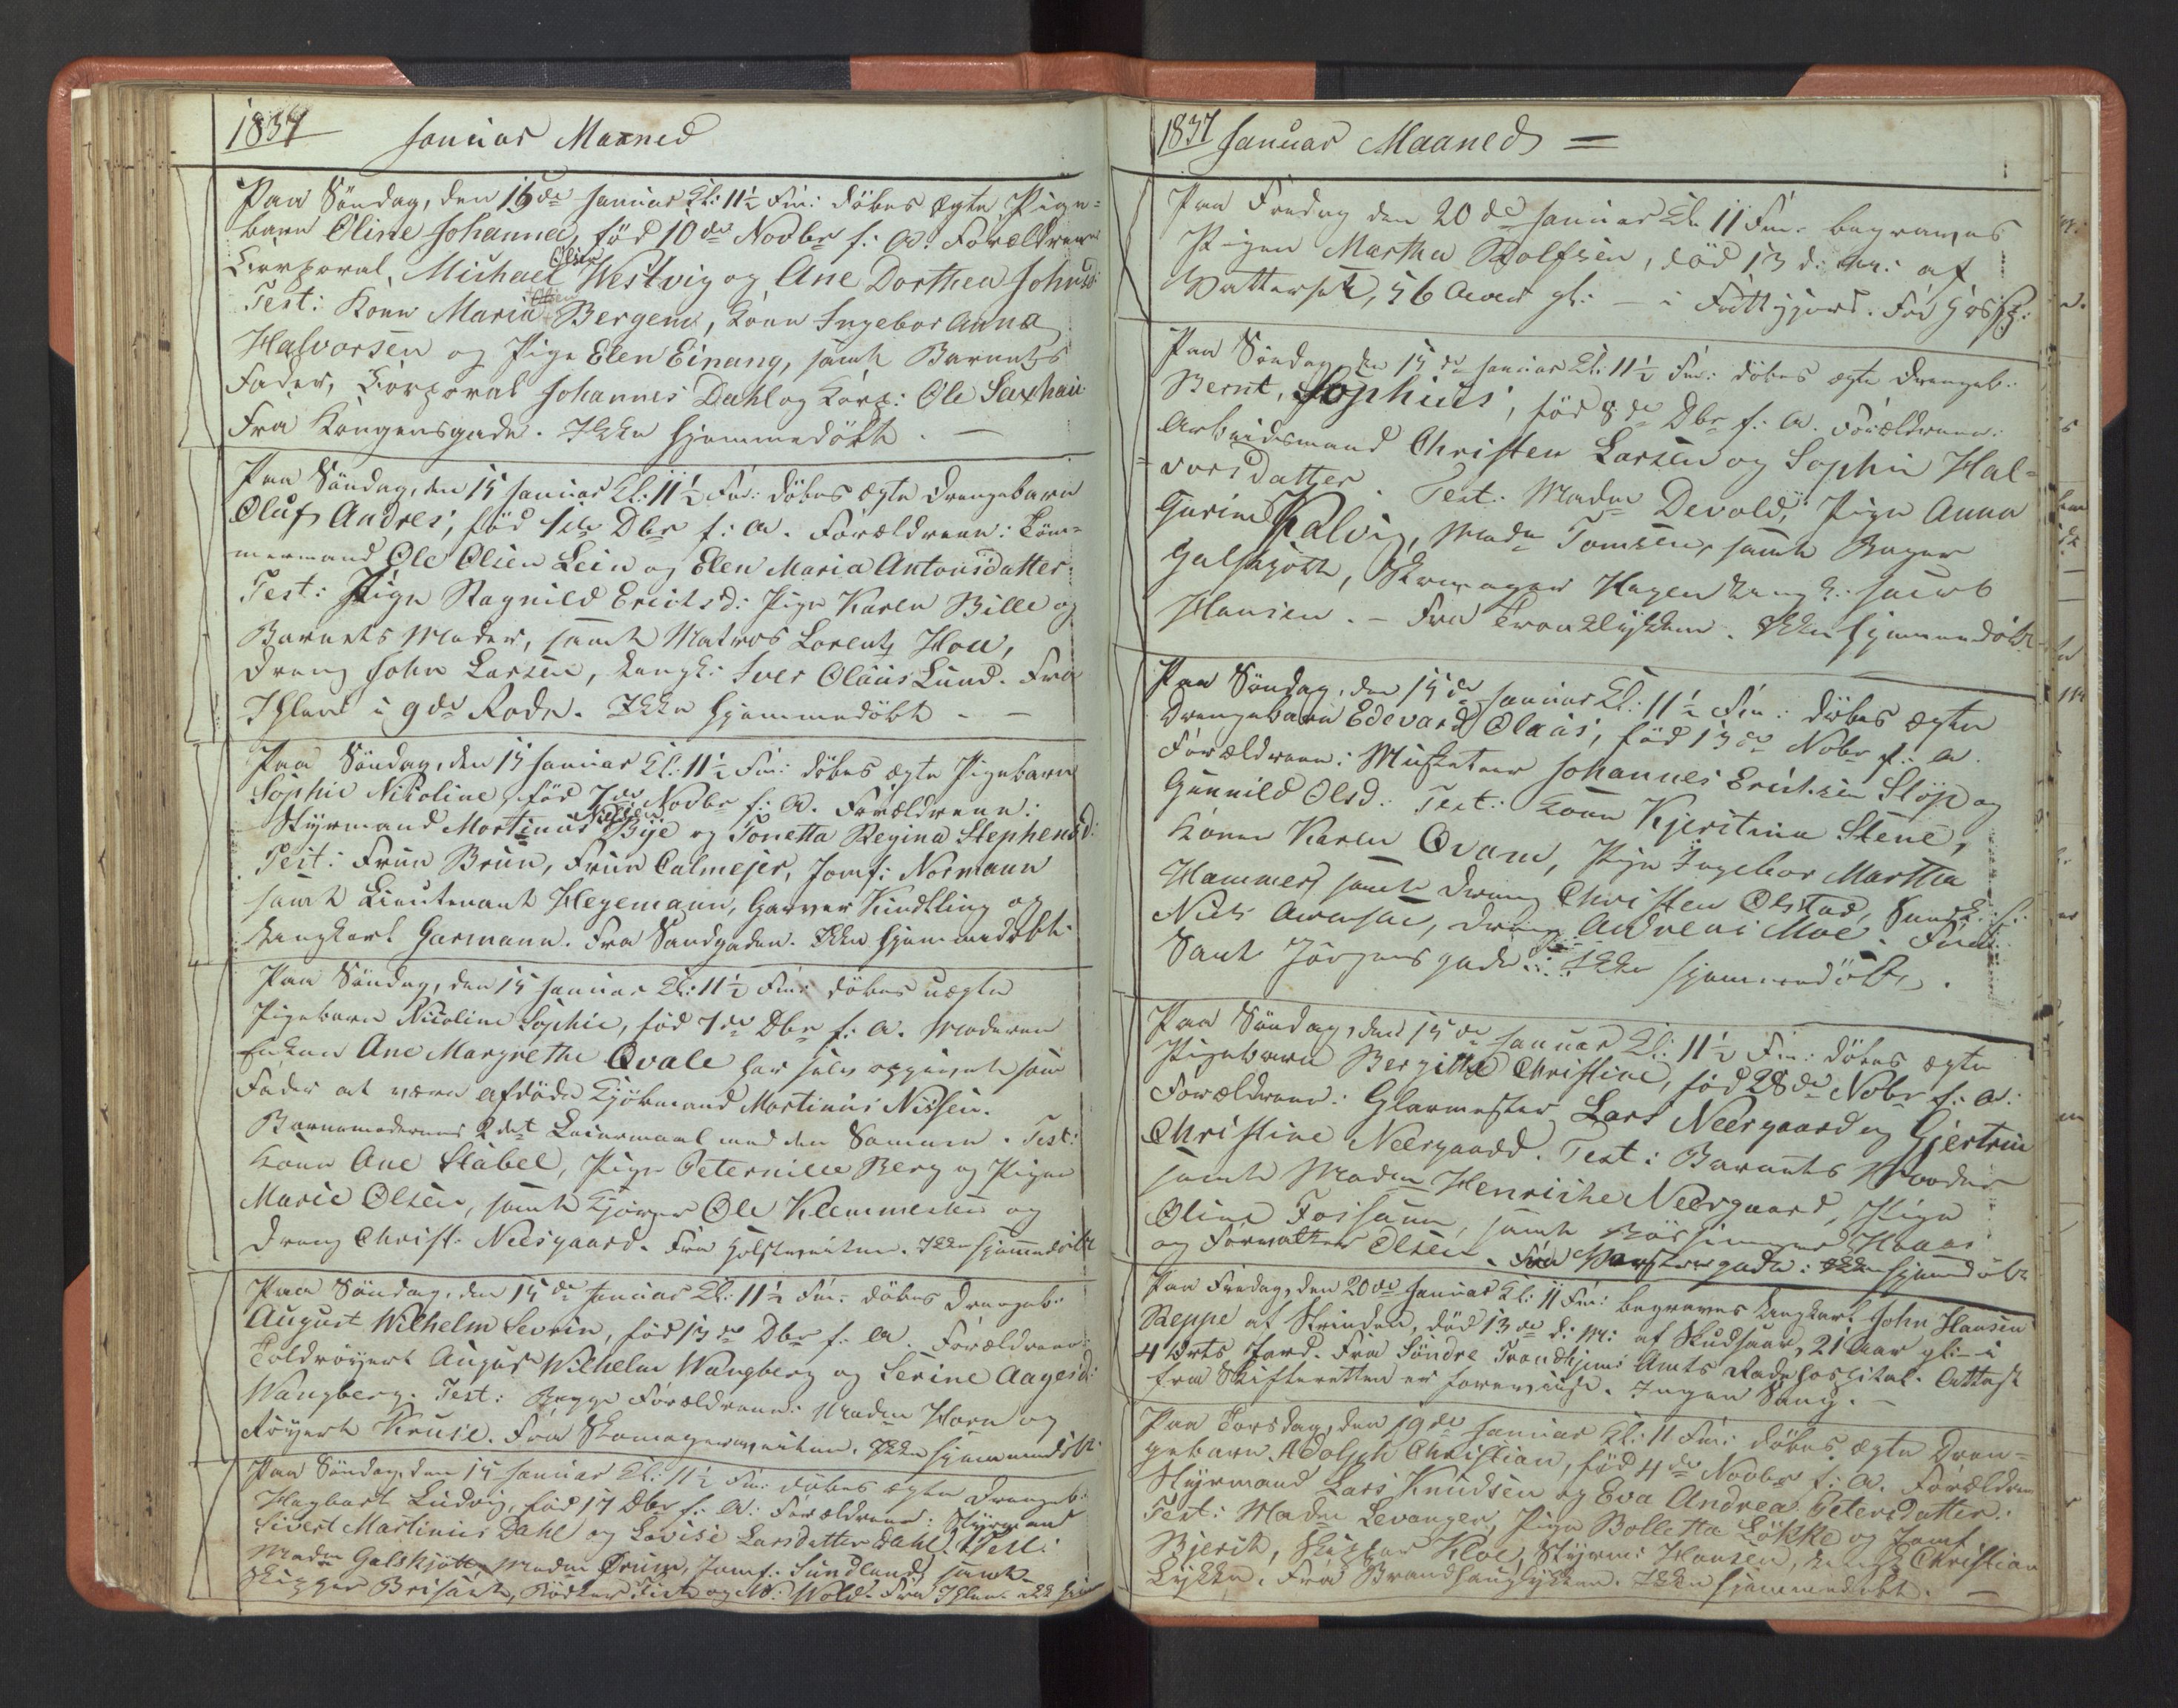 1837 Januar Maaned
Paa Söndag, den 15de Januar Kl: 11½ Fm: döbes ægte Pige-
barn Oline Johanna, född 10de Novbr f: A. Forældrene
Corporal Michael Olsen Westvig og Ane Dorthea Johnsd:
Test: Kone Maria Olsen Bergem, Kone Ingebor Anna
Halvorsen og Pige Elen Einang, samt Barnets
Fader, Corporal Johannes Dahl og Corp: Ole Saxhau
Fra Kongensgade. Ikke hjemmedöbt. —
Paa Söndag, den 15 Januar Kl: 11½ Fm: döbes ægte Drengebarn
Oluf Andres, född 1ste Dbr f: A. Forældrene: Töm-
mermand Ole Olsen Lein og Elen Maria Antonsdatter.
Test: Pige Ragnild Erichsd: Pige Karen Bille og
Barnets Moder, samt Matros Lorentz Hou,
Dreng John Larsen, Ungk: Iver Olaus Lund. Fra
Ihlen i 9de Rode. Ikke hjemmedöbt. —
Paa Söndag, den 15 Januar Kl: 11½ Fm: döbes ægte Pigebarn
Sophie Nicoline, född 7de Novbr f: A. Forældrene:
Styrmand Martinus Nielsen Bye og Tonetta Regina Stephensd:
Test: Frue Brun, Frue Calmejer, Jomf: Normann
samt Lieutenant Hegemann, Garver Kindtling og
Ungkarl Garmann. Fra Sandgaden. Ikke hjemmedöbt.
Paa Söndag, den 15 Januar Kl: 11½ Fm: döbes uægte
Pigebarn Nicoline Sophie, född 7de Dbr f: A. Moderen
Enken Ane Margrethe Qvale har selv opgivet som
Fader at være afdöde Kjöbmand Martinus Nissen.
Barnemoderens 2det Leiermaal med den Samme. Test:
Kone Ane Stabel, Pige Peternille Berg og Pigen
Marie Olsen, samt Kjører Ole Klemmesen og
Dreng Christ: Neergaard. Fra Holstveiten. Ikke hjemmedöbt
Paa Söndag, den 15de Januar Kl: 11½ Fm: döbes Drengeb:
August Wilhelm Severin, född 13de Dbr f: A. Forældrene:
Toldroyert August Wilhelm Wangberg og Serine Aagesd:
Wangberg. Test: Begge Forældrene: Madm Horn og
Royert Kruse. Fra Skomagerveiten. Ikke hjemmedöbt.
Paa Söndag, den 15 Januar Kl: 11½ Fm: döbes ægte Drengeb:
Hagbart Ludvig, född 17 Dbr f: A: Forældrene: Styrmand
Sivert Martinus Dahl og Lovise Larsdatter Dahl. Test:
Madm Galskjött, Madm Örum, Jomf: Sundland, samt
Skipper Brisart, Bödker og M: Wold. Fra Ihlen. ikke
1837 Januar Maaned =
Paa Fredag den 20de Januar Kl: 11 Fm: begraves
Pigen Martha Rolfsen, död 13 d: M: af
Vattersot, 56 Aar gl: — i Fritt gjord. Fra Hosp:
Paa Söndag den 15de Januar Kl: 11½ Fm: döbes ægte Drengeb:
Bernt Sophius, född 8de Dbr f: A. Forældrene:
Arbeidsmand Christen Larsen og Sophie Hal-
vorsdatter. Test: Madm Devold, Pige Anna
Gurine Kalvig, Madm Tomsen, samt Bager
Galskjött, Skomager Hagen Ungk: Jacob
Hansen. — Fra Ikke hjemmedöbt.
Paa Söndag, den 15de Januar Kl: 11½ Fm: döbes ægte
Drengebarn Edevard Olaus, född 13de Nobr f: A.
Forældrene: Musketeer Johannes Erichsen Stöp og
Gunnild Olsd: Test: Kone Kjerstina Stene,
Konen Karen Qvam, Pige Ingebor Martha
Hammer, samt Dreng Christen Olstad,
Niels Arensen, Dreng Andreas Moe. Fra
Sant Jörgensgade. Ikke hjemmedöbt.
Paa Söndag, den 15de Januar Kl: 11½ Fm: döbes ægte
Pigebarn Bergitte Christine, född 28de Nobr f: A:
Forældrene: Glarmester Lars Neergaard og Gjertrue
Christine Neergaard. Test: Barnets Moder
samt Madm Henriche Neergaard, Pige
Oline Foss, samt Haar
og Forvalter Olsen. Fra gade: Ikke hjemmedöbt
Paa Fredag, den 20de Januar Kl: 11 Fm: begraves Ungkarl John Hansen
Reppe af Strinden, död 13de d: M: af Skudsaar, 21 Aar gl: — i
4 Orts Jord. Fra Söndre Trondhjems Amts Radehospital. Attest
fra Skifteretten er foreviist. Ingen Sang. —
Paa Torsdag, den 19de Januar Kl: 11 Fm: döbes ægte Dren-
gebarn Adolph Christian, född 4de Novbr f: A. Forældrene
Styrmand Lars Knudsen og Eva Andrea Petersdatter.
Test: Madm Levanger, Pige Bolletta Lökke og Jomf
Bjerck, Skipper Kloe, Styrm: Hansen, Ungk: Christian
Lykke. Fra Brandhauglykken. Ikke hjemmedöbt. —